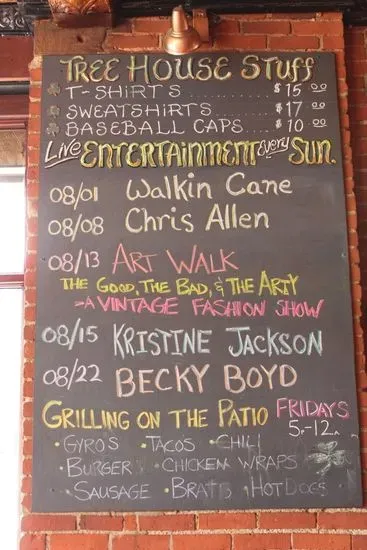 TREE HOUSE STUFF
T-SHIRTS.......... $15 00
SWEATSHIRTS...... $17 00
BASEBALL CAPS.... $10 00
Live ENTERTAINMENT every SUN.
08/01 Walkin Cane
08/08 Chris Allen
08/13 ART WALK
THE GOOD, THE BAD, & THE ARTY
-A VINTAGE FASHION SHOW
08/15 KRISTINE JACKSON
08/22 BECKY BOYD
GRILLING ON THE PATIO FRIDAYS
5P-12A
•GYRO'S •TACOS •CHILI
•BURGER •CHICKEN WRAPS
•SAUSAGE •BRATS •HOTDOGS